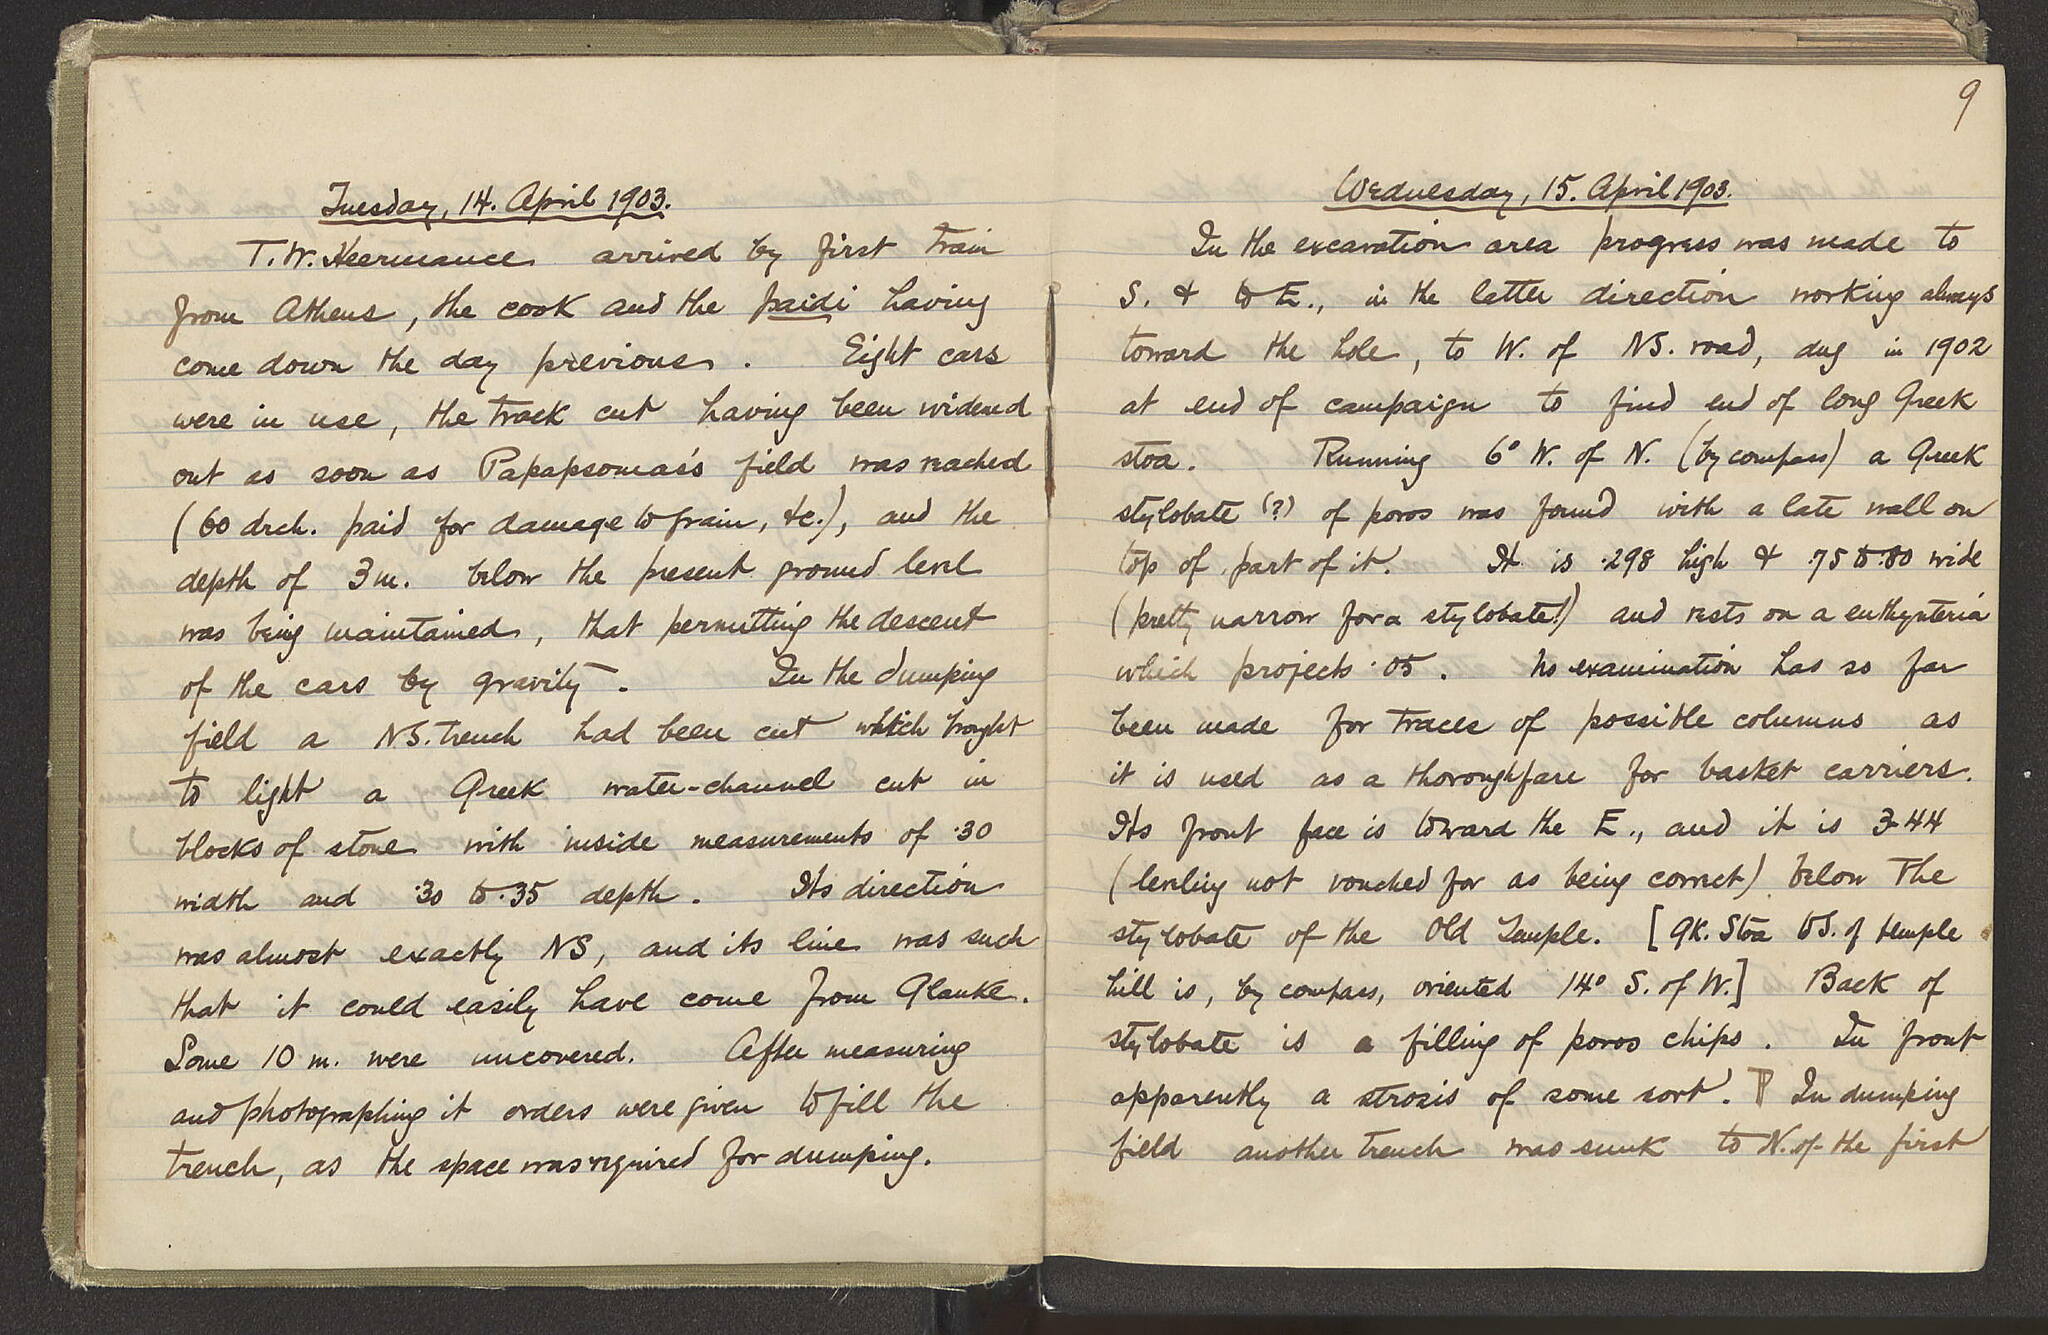 Tuesday, 14. April 1903.
T. W. Heermance arrived by first train
from Athens, the cook and the paidi having
come down the day previous. Eight cars
were in use, the track cut having been widened
out as soon as Papapsomas's field was reached
(60 drch. paid for damage to grain, &c.), and the
depth of 3 m. below the present ground level
was being maintained, that permitting the descent
of the cars by gravity. In the dumping
field a NS. trench had been cut which brought
to light a Greek water-channel cut in
blocks of stone with inside measurements of .30
width and .30 to .35 depth. Its direction
was almost exactly NS, and its line was such
that it could easily have come from Glauke.
Some 10 m. were uncovered. After measuring
and photographing it orders were given to fill the
trench, as the space was required for dumping.
9
Wednesday, 15. April 1903.
In the excavation area progress was made to
S. & to E., in the latter direction working always
toward the hole, to W. of NS. road, dug in 1902
at end of campaign to find end of long Greek
stoa. Running 6° W. of N. (by compass) a Greek
stylobate (?) of poros was found with a late wall on
top of part of it. It is .298 high & .75 to .80 wide
(pretty narrow for a stylobate!) and rests on a euthynteria
which projects .05. No examination has so far
been made for traces of possible columns as
it is used as a thoroughfare for basket carriers.
Its front face is toward the E., and it is 3.44
(leveling not vouched for as being correct) below the
stylobate of the Old Temple. [Gk. Stoa to S. of temple
hill is, by compass, oriented 14° S. of W.] Back of
stylobate is a filling of poros chips. In front
apparently a strosis of some sort. ¶ In dumping
field another trench was sunk to N. of the first